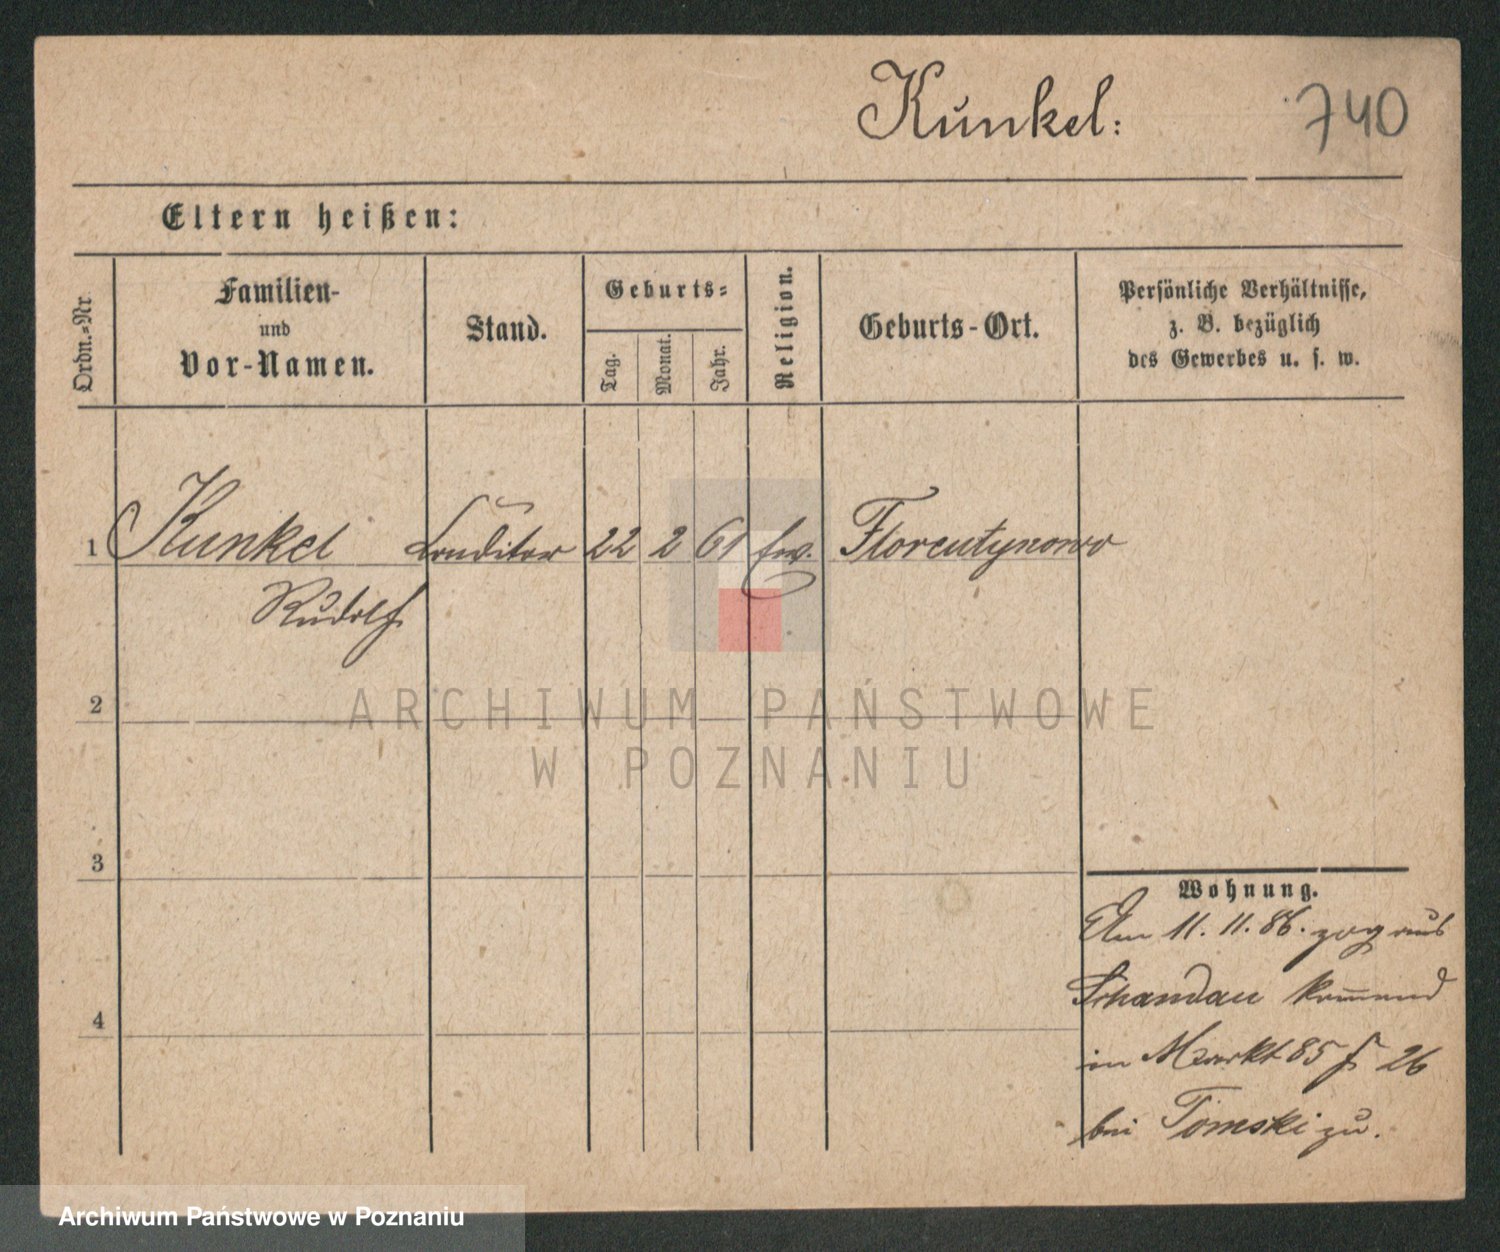 Kunkel: 740
Eltern heißen:
Ordn.-Nr
Familien-
und
Vor-Namen.
Stand.
Geburts-
Tag.
Monat.
Jahr.
Religion.
Geburts-Ort.
Persönliche Verhältnisse,
z. B. bezüglich
des Gewerbes u. s. w.
1 Kunkel Conditor 22 2 61 ev. Florentynowo
Rudolf
2
3
4
Wohnung.
Am 11. 11. 86. zog aus
Schandau kommend
in Markt 85 f 26
bei Tomski zu.
ARCHIWUM PAŃSTWOWE
W POZNANIU
Archiwum Państwowe w Poznaniu